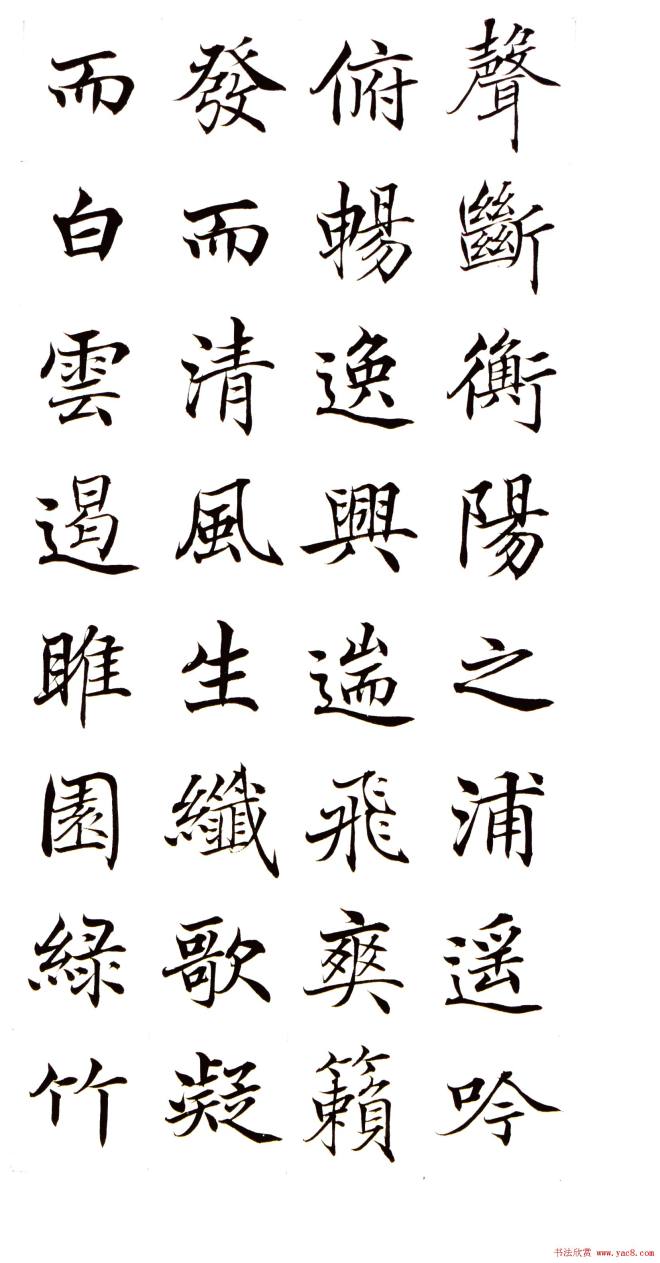 聲斷衡陽之浦遥吟
俯暢逸興遄飛爽籟
發而清風生纖歌凝
而白雲遏睢園緑竹
书法欣赏 www.yac8.com